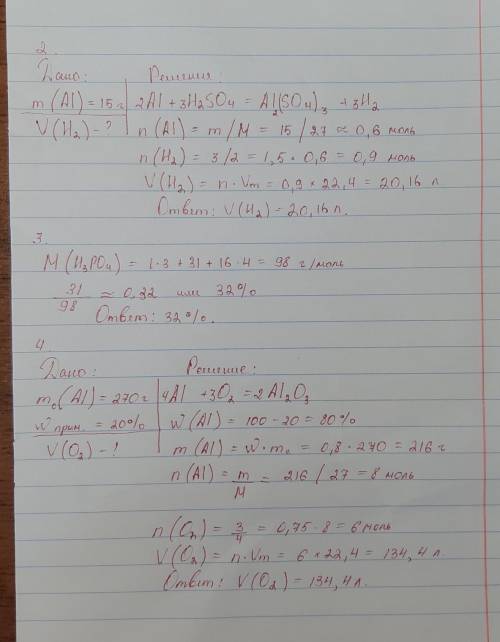 2.
Дано: Решение:
m(Al) = 15 г 2Al + 3H₂SO₄ = Al₂(SO₄)₃ + 3H₂
V(H₂) - ? n(Al) = m/M = 15/27 ≈ 0,6 моль
n(H₂) = 3/2 = 1,5 · 0,6 = 0,9 моль
V(H₂) = n · Vm = 0,9 × 22,4 = 20,16 л
Ответ: V(H₂) = 20,16 л.
3.
M(H₃PO₄) = 1·3 + 31 + 16·4 = 98 г/моль
31/98 ≈ 0,32 или 32%
Ответ: 32%.
4.
Дано: Решение:
m₀(Al) = 270 г 4Al + 3O₂ = 2Al₂O₃
W прим. = 20% W(Al) = 100 - 20 = 80%
V(O₂) - ? m(Al) = W · m₀ = 0,8 · 270 = 216 г
n(Al) = m/M = 216/27 = 8 моль
n(O₂) = 3/4 = 0,75 · 8 = 6 моль
V(O₂) = n · Vm = 6 × 22,4 = 134,4 л
Ответ: V(O₂) = 134,4 л.